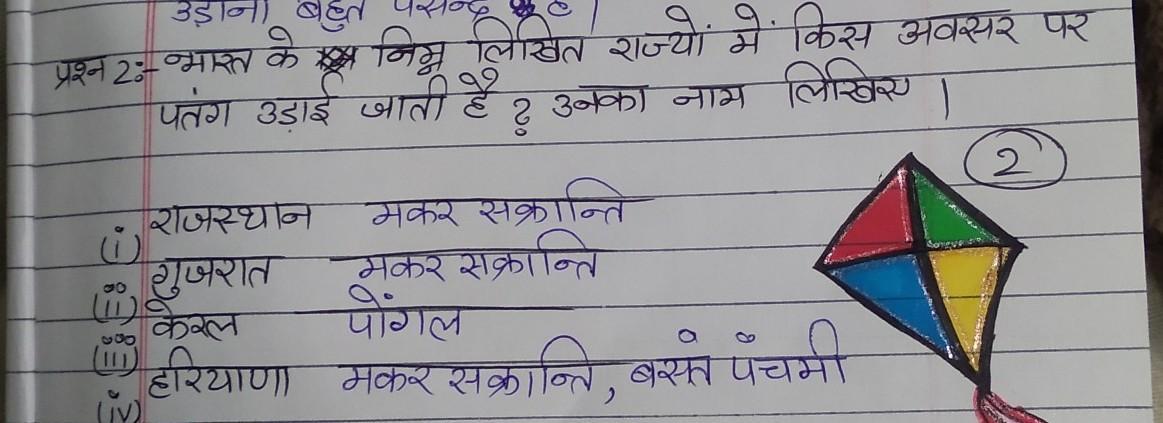 उड़ाना बहुत पसन्द है।
प्रश्न 2:- भारत के निम्न लिखित राज्यों में किस अवसर पर
पतंग उड़ाई जाती है ? उनका नाम लिखिए ।
2
(i) राजस्थान मकर सक्रान्ति
(ii) गुजरात मकर सक्रान्ति
(iii) केरल पोंगल
(iv) हरियाणा मकर सक्रान्ति, बसंत पंचमी